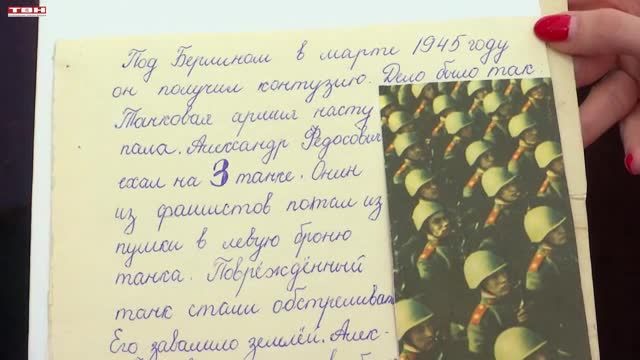 ТВН
Под Берлином в марте 1945 году
он получил контузию. Дело было так
Танковая армия насту
пала. Александр Федосович
ехал на 3 танке. Онин
из фашистов попал из
пушки в левую броню
танка. Повреждённый
танк стали обстреливат
Его завалило землёй. Алек-